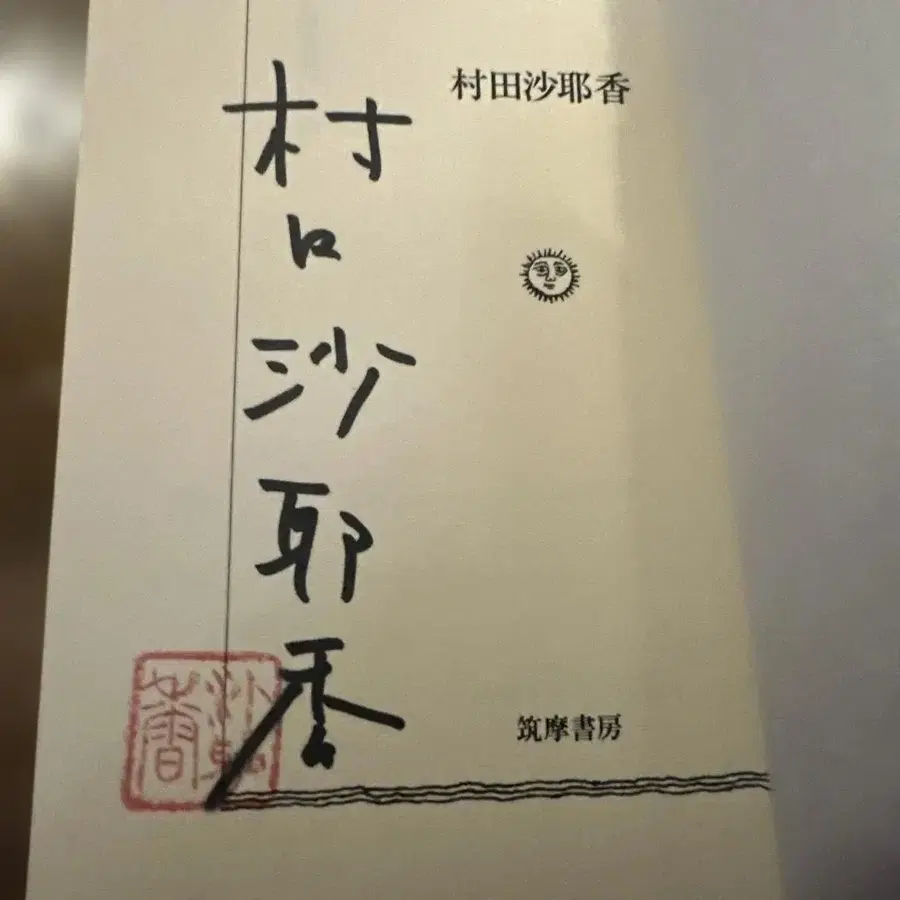 村田沙耶香
村田沙耶香
筑摩書房